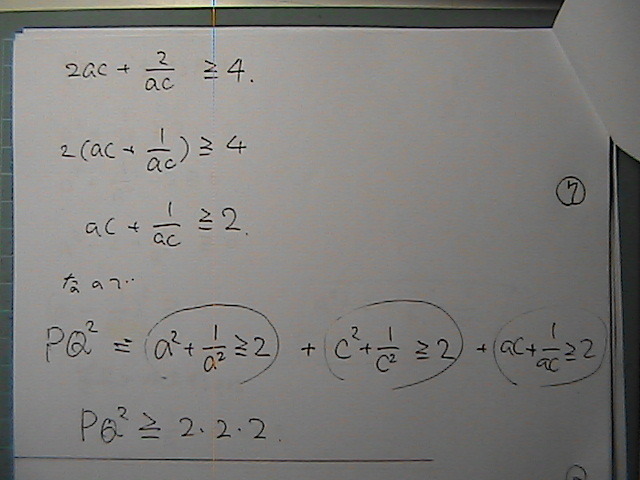 2ac + 2/ac ≧ 4.
2(ac + 1/ac) ≧ 4
⑦
ac + 1/ac ≧ 2.
なので
PQ² = (a² + 1/a² ≧ 2) + (c² + 1/c² ≧ 2) + (ac + 1/ac ≧ 2)
PQ² ≧ 2・2・2.